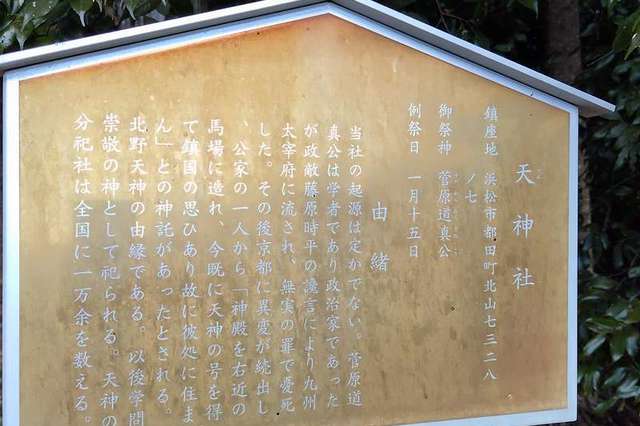 天神社
鎮座地 浜松市都田町北山七三二八
ノ七
御祭神 菅原道真公
例祭日 一月十五日
由緒
当社の起源は定かでない。菅原道
真公は学者であり政治家であった
が政敵藤原時平の讒言により九州
太宰府に流され、無実の罪で憂死
した。その後京都に異変が続出し
、公家の一人から「神殿を右近の
馬場に造れ、今既に天神の号を得
て鎮国の思ひあり故に彼処に住ま
ん」との神託があったとされる。
北野天神の由縁である。以後学問
崇敬の神として祀られる。天神の
分祀社は全国に一万余を数える。